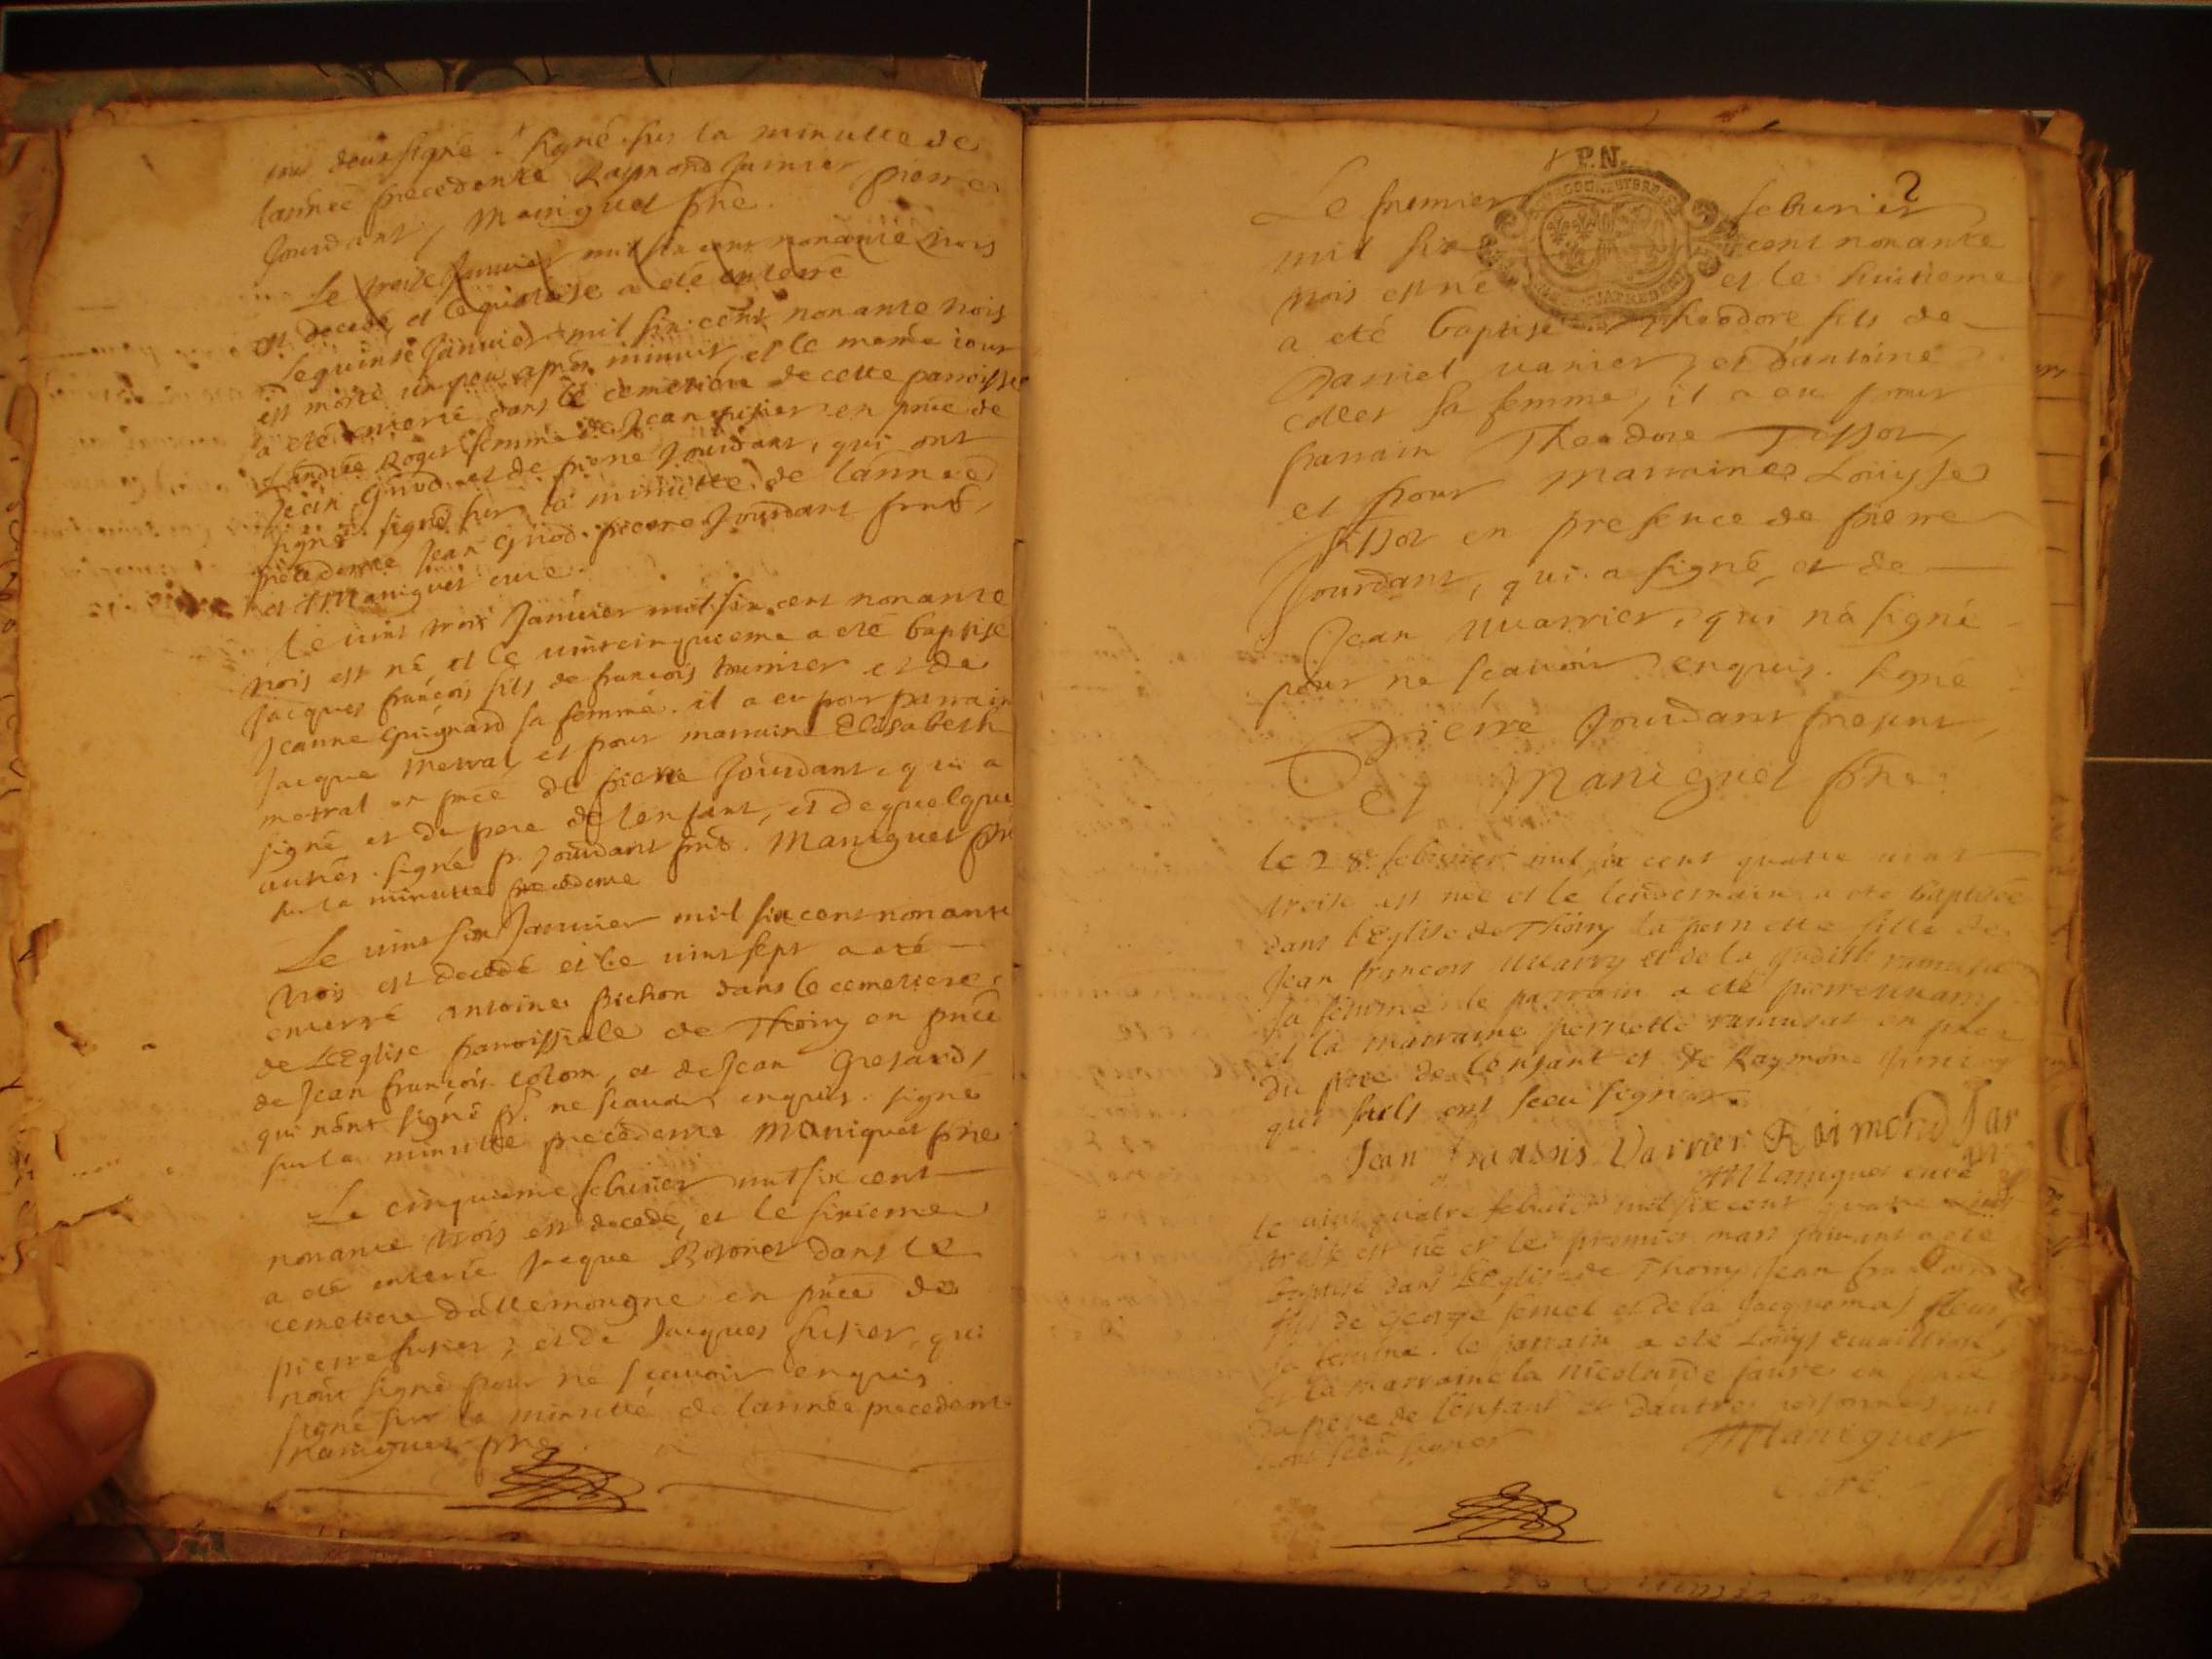 soussigné. signé sur la minutte de
lannée precedente Raymond Junier pierre
Jourdant, Maniguet pbre.
Le treise Janvier mil six cent nonante trois
est decedé, et le quatorse a eté enterré
Le quinse Janvier mil six cent nonante trois
est morte un peu apres minuit, et le meme iour
a eté enterré dans le cemetiere de cette parroisse
Roget femme de Jean fusier en pnce de
Jean Griod et de pierre Jourdant, qui ont
signé. signé sur la minutte de lannée
precedente Jean Griod. pierre Jourdant pnt,
et Maniguet curé.
Le vint trois Janvier mil six cent nonante
trois est né et le vintcinquieme a eté baptise
Jacques françois fils de francois munier et de
Jeanne Guignard sa femme. il a eu pour parrain
Jacque metral, et pour marraine Elisabeth
metral en pnce de pierre Jourdant, qui a
signé et du pere de lenfant, et de quelque
autres. signé p. Jourdant pnt. Maniguet pbre
sur la minutte precedente
Le vint six Janvier mil six cent nonante
trois est decedé et le vint sept a eté
enterré antoine pichon dans le cemetiere
de LEglise parroissiale de Thoiry en pnce
de Jean françois colom, et de Jean Grosard
qui nont signé pr. ne scavoir enquis. signé
sur la minutte precedente Maniguet pbre
Le cinquieme febvrier mil six cent
nonante trois est decedé, et le sixieme
a eté enterré Jacque Rosonet dans le
cemetiere dallemongne en pnce de
pierre fusier, et de Jacques fusier, qui
nont signé pour ne scavoir enquis
signé sur la minutte de lannée precedente
Maniguet pbre
P.N.
2
Le premier febvrier
mil six cent nonante
trois est né et le huitieme
a eté baptisé Theodore fils de
Daniel varier, et dantoine
collet sa femme, il a eu pour
parrain Theodore Tissot,
et pour marraine Louysse
Tissot en presence de pierre
Jourdant, qui a signé, et de
Jean vvarrier, qui na signé
pour ne scavoir enquis. signé
Pierre Jourdant present,
Et Maniguet pbre.
le 28e febvrier mil six cent quatre vint
treise est née et le lendemain a ete baptisée
dans lEglise de Thoiry la pernette fille de
Jean françois vvarry et de la Judith ramusat
sa femme le parrain a eté pierre vvarry
et la marraine pernette ramusat en pnce
du pere de lenfant et de Raymond Junier
qui seuls ont sceu signer
Jean fransois Varrier Raimond Jar
Maniguet curé
le vint quatre febvrier mil six cent quatre vint
treise est né et le premier mars suivant a eté
baptisé dans lEglise de Thoiry Jean francois
fils de George femel et de la Jacquema fleur
sa femme. le parrain a eté Louys
et la marraine la nicolarde favre en pnce
du pere de lenfant et dautres personnes qui
nont sceu signer
Maniguet
Curé.